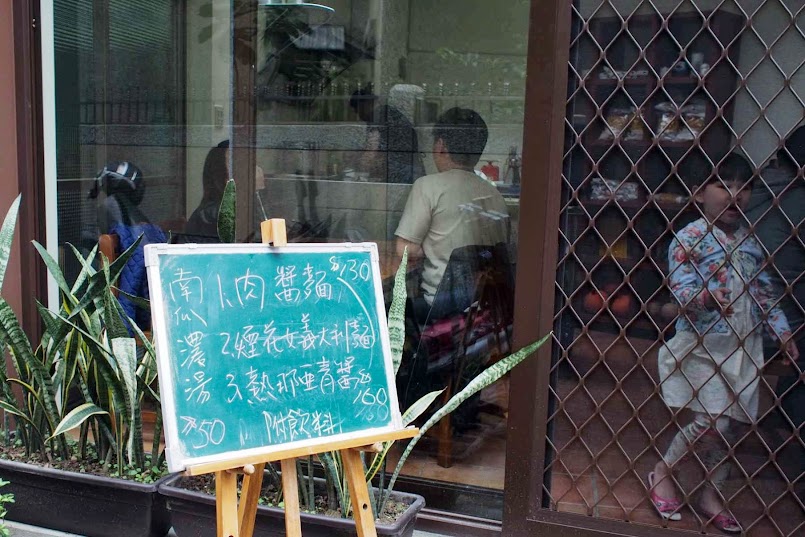 南瓜濃湯
$50
1.肉醬麵 $130
2.煙花女義大利麵
3.熱那亞青醬 $160
附飲料